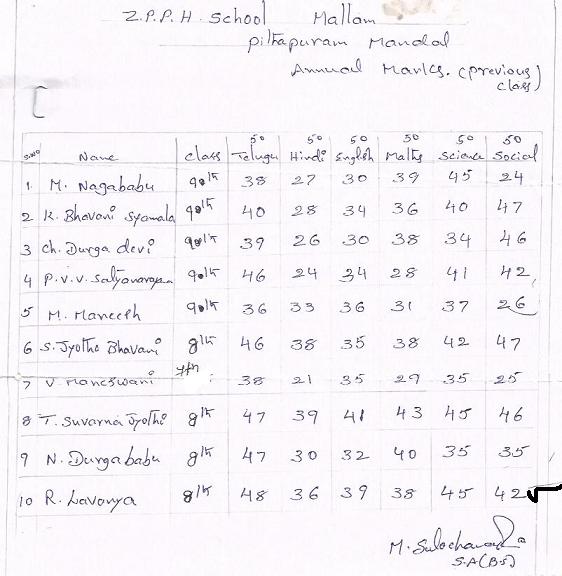 Z.P.P.H. School Mallam
Pithapuram Mandal
Annual Marks. (previous class)
50 50 50 50 50 50
S.No Name class Telugu Hindi English Maths Science Social
1 M. Nagababu 9th 38 27 30 39 45 24
2 K. Bhavani Syamala 9th 40 28 34 36 40 47
3 Ch. Durga devi 9th 39 26 30 38 34 46
4 P.V.V. Satyanarayana 9th 46 24 34 28 41 42
5 M. Maneesh 9th 36 33 36 31 37 26
6 S. Jyothi Bhavani 8th 46 38 35 38 42 47
7 V. Maheswani 7th 38 21 35 29 35 25
8 T. Suvarna Jyothi 8th 47 39 41 43 45 46
9 N. Durgababu 8th 47 30 32 40 35 35
10 R. Lavanya 8th 48 36 39 38 45 42
M. Sulochana
S.A (B.S)